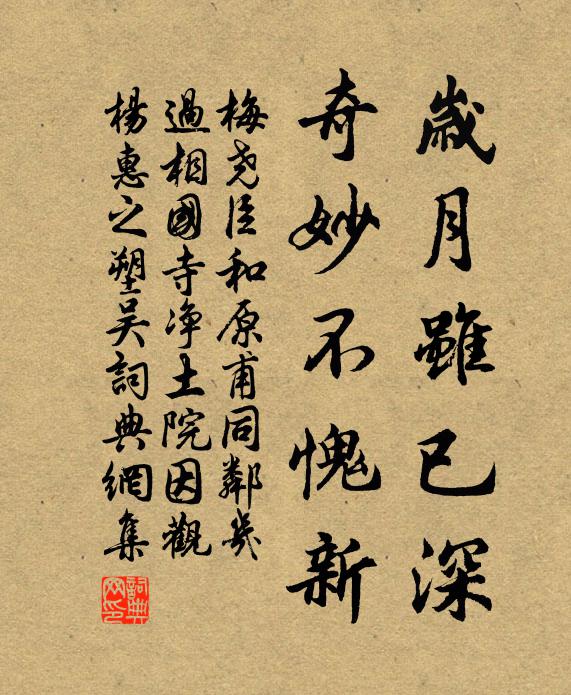 歲月雖已深
奇妙不愧新
梅堯臣和原甫同鄰幾
過相國寺淨土院因觀
楊惠之塑吳詞典網集
詞典
网印